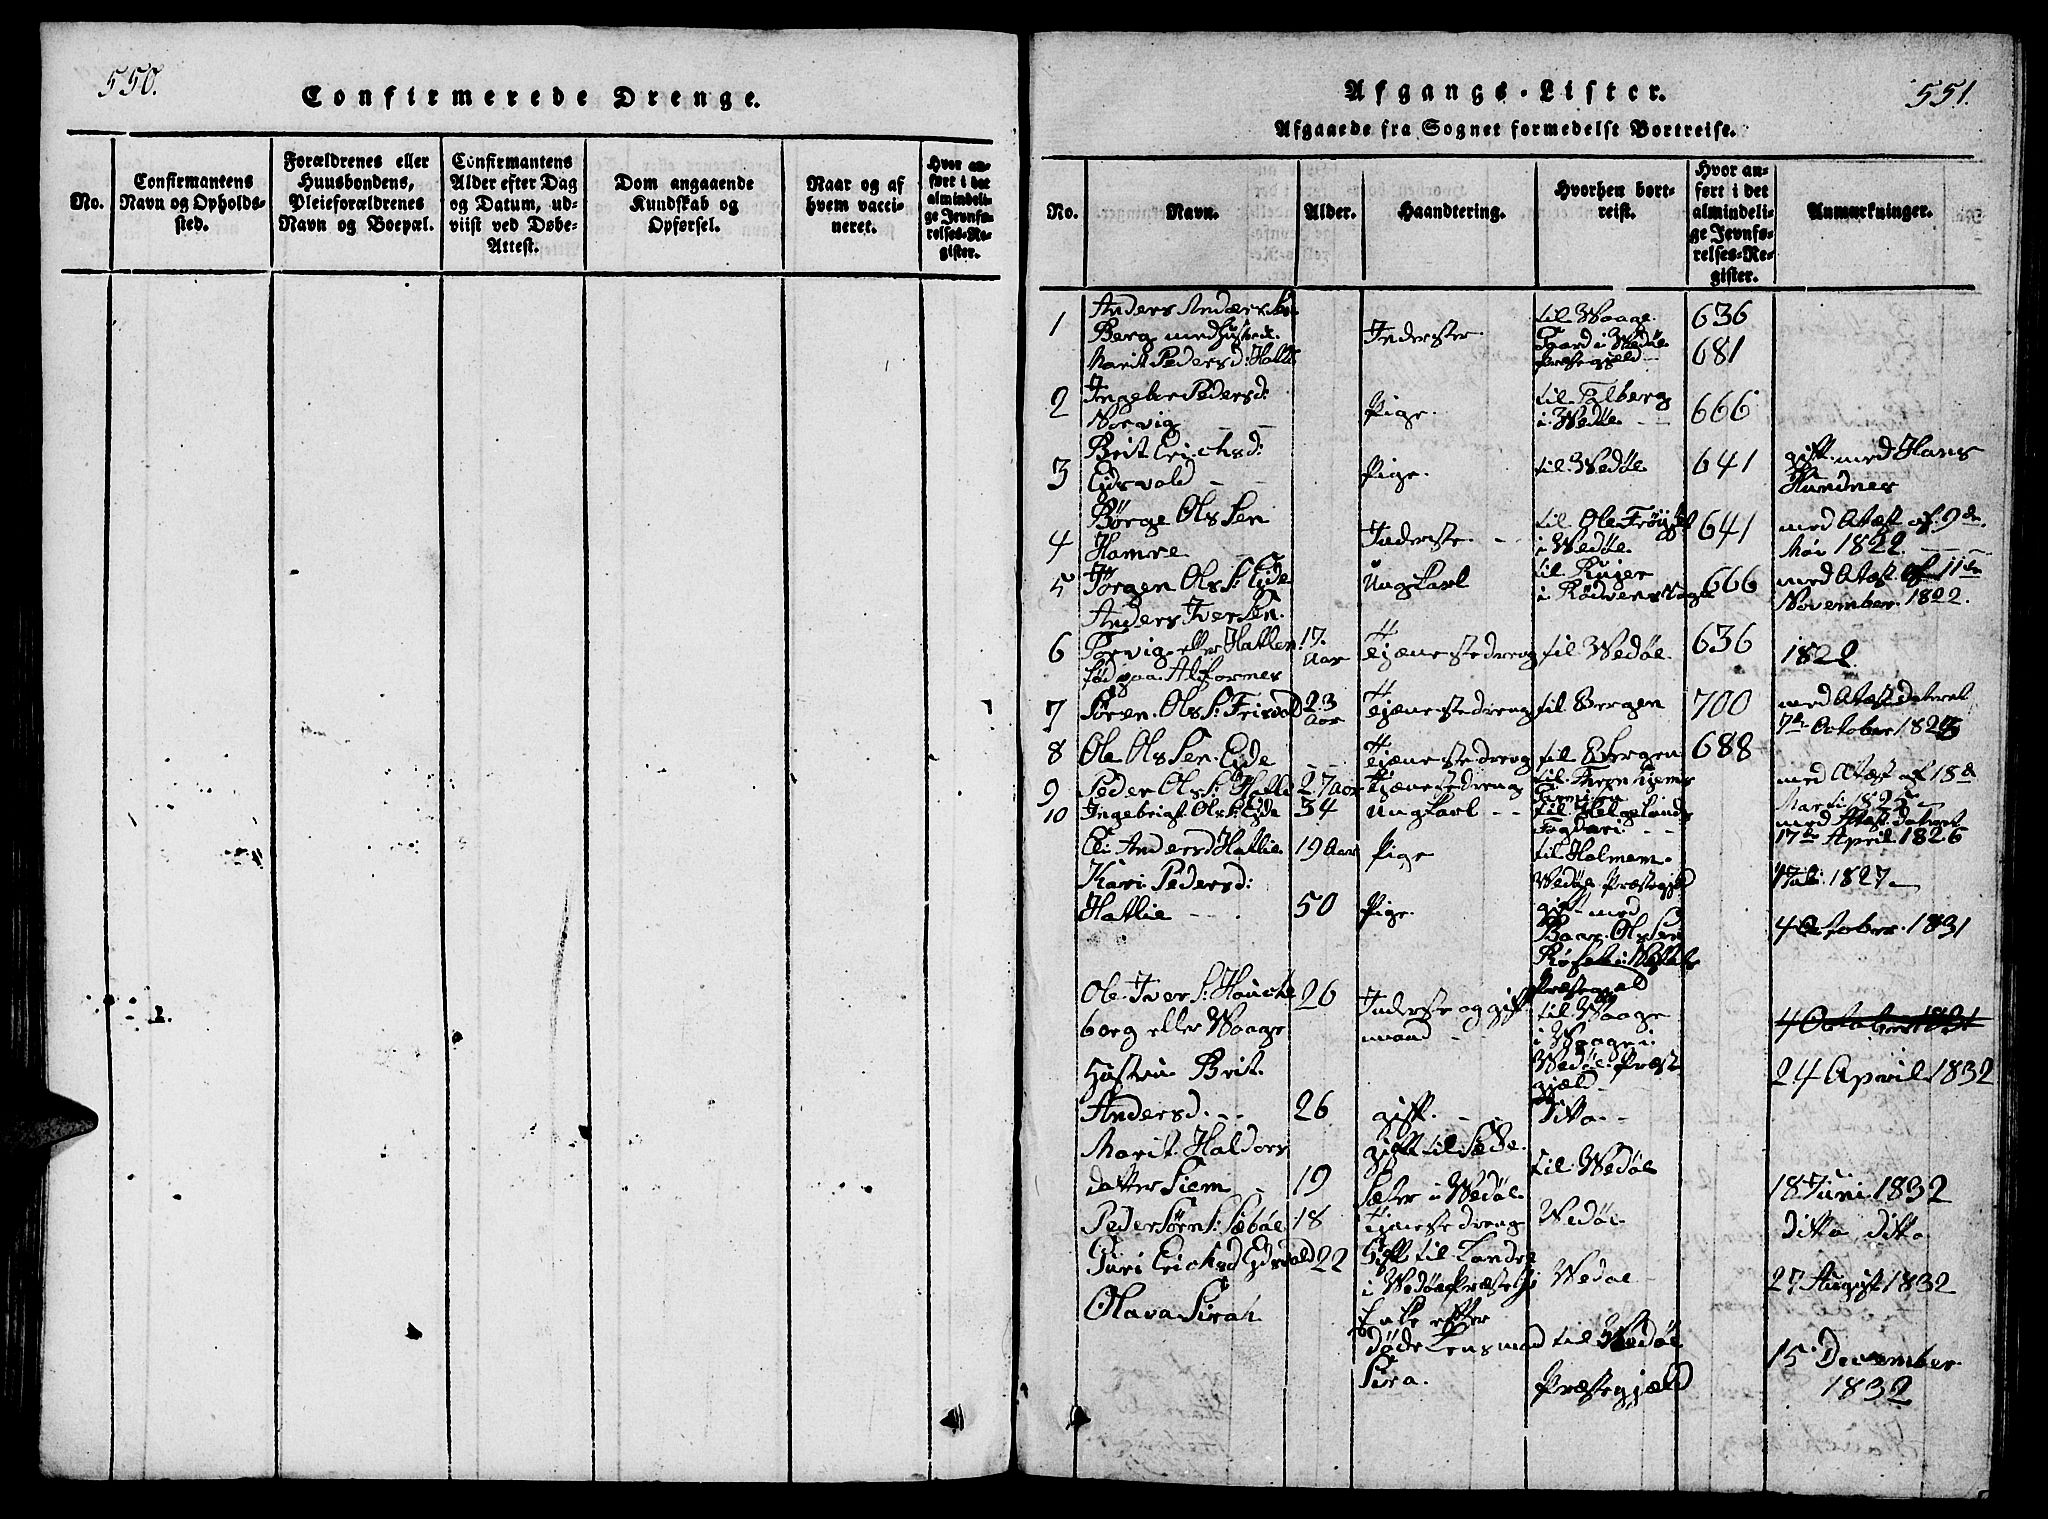 550.
Confirmerede Drenge.
No.
Confirmantens
Navn og Opholds-
sted.
Forældrenes eller
Huusbondens,
Pleieforældrenes
Navn og Boepæl.
Confirmantens
Alder efter Dag
og Datum, ud-
viist ved Døbe-
Attest.
Dom angaaende
Kundskab og
Opførsel.
Naar og af
hvem vacci-
neret.
Hvor an-
ført i det
almindeli-
ge Jevnfø-
relses-Re-
gister.
551.
Afgangs-Lister.
Afgaaede fra Sognet formedelst Bortreise.
No.
Navn.
Alder.
Haandtering.
Hvorhen bort-
reist.
Hvor an-
ført i det
almindeli-
ge Jevnfø-
relses-Re-
gister.
Anmærkninger.
1
Anders
Berg med
Marit Pedersd: Hatle
Inderster
til Waage
Gaard i Wedøe
Præstegjeld
636
681
2
Ingebor Pedersd:
Norvig
Pige.
til Talberg
i Wedøe
666
3
Brit Erichsd:
Eidsvold
Pige.
til Wedøe
641
gift med Hans
Hundnes
4
Børge Olssen
Hamre
Inderste
til Ole
i Wedøe
641
med Atæst af 9de
1822
5
Jørgen Olss: Eide
Ungkarl
til
i Rødvens
666
med Atæst af 11te
November 1822.
6
Anders Iversen
eller Hatlen
fød paa Alfornes
17
Aar
Tjænestedreng
til Wedøe
636
1822
7
Søren Olss: Frisvold
23
Aar
Tjænestedreng
til Bergen
700
med Atæst dateret
7de October 182
8
Ole Olssen Eide
Tjænestedreng
til Bergen
688
9
Peder Olss: Hatle
27 Aar
Tjænestedreng
til Tronhjems
med Atæst af 18d
Marti 1825
10
Ingebrigt Olss: Eide
34
Ungkarl
til Helgelands
Fogderi
med Atæst dateret
17de April 1826
Eli Andersd Hatlie
19 Aar
Pige
til Holmem
Wedøe Præstegjeld
1827
Kari Pedersd:
Hatlie
50
Pige.
gift med
Olssen
Præstegjeld
4 October 1831
Ole Ivers: Houche
borg eller Waage
26
Inderste og gift
mand
til Waage
i Waage i
Wedøe Præst
gjæld
4 October 1831
24 April 1832
Hustru Brit
Andersd.
26
gift.
Ditto
Marit Haldors
datter Siem
19
gift til
Sæter i Wedøe
til Wedøe
18 Juni 1832
Peder Sørns: Sæbøe
18
Tjenestedreng
Wedøe
ditto ditto
Guri Erichsd Eidsvold
22
Gift til
i Wedøe Præstegj
Wedøe
27 August 1832
Olava Sirah
Enke efter
døde Lensmand
Sira.
til Wedøe
Præstegjæld
15 December
1832